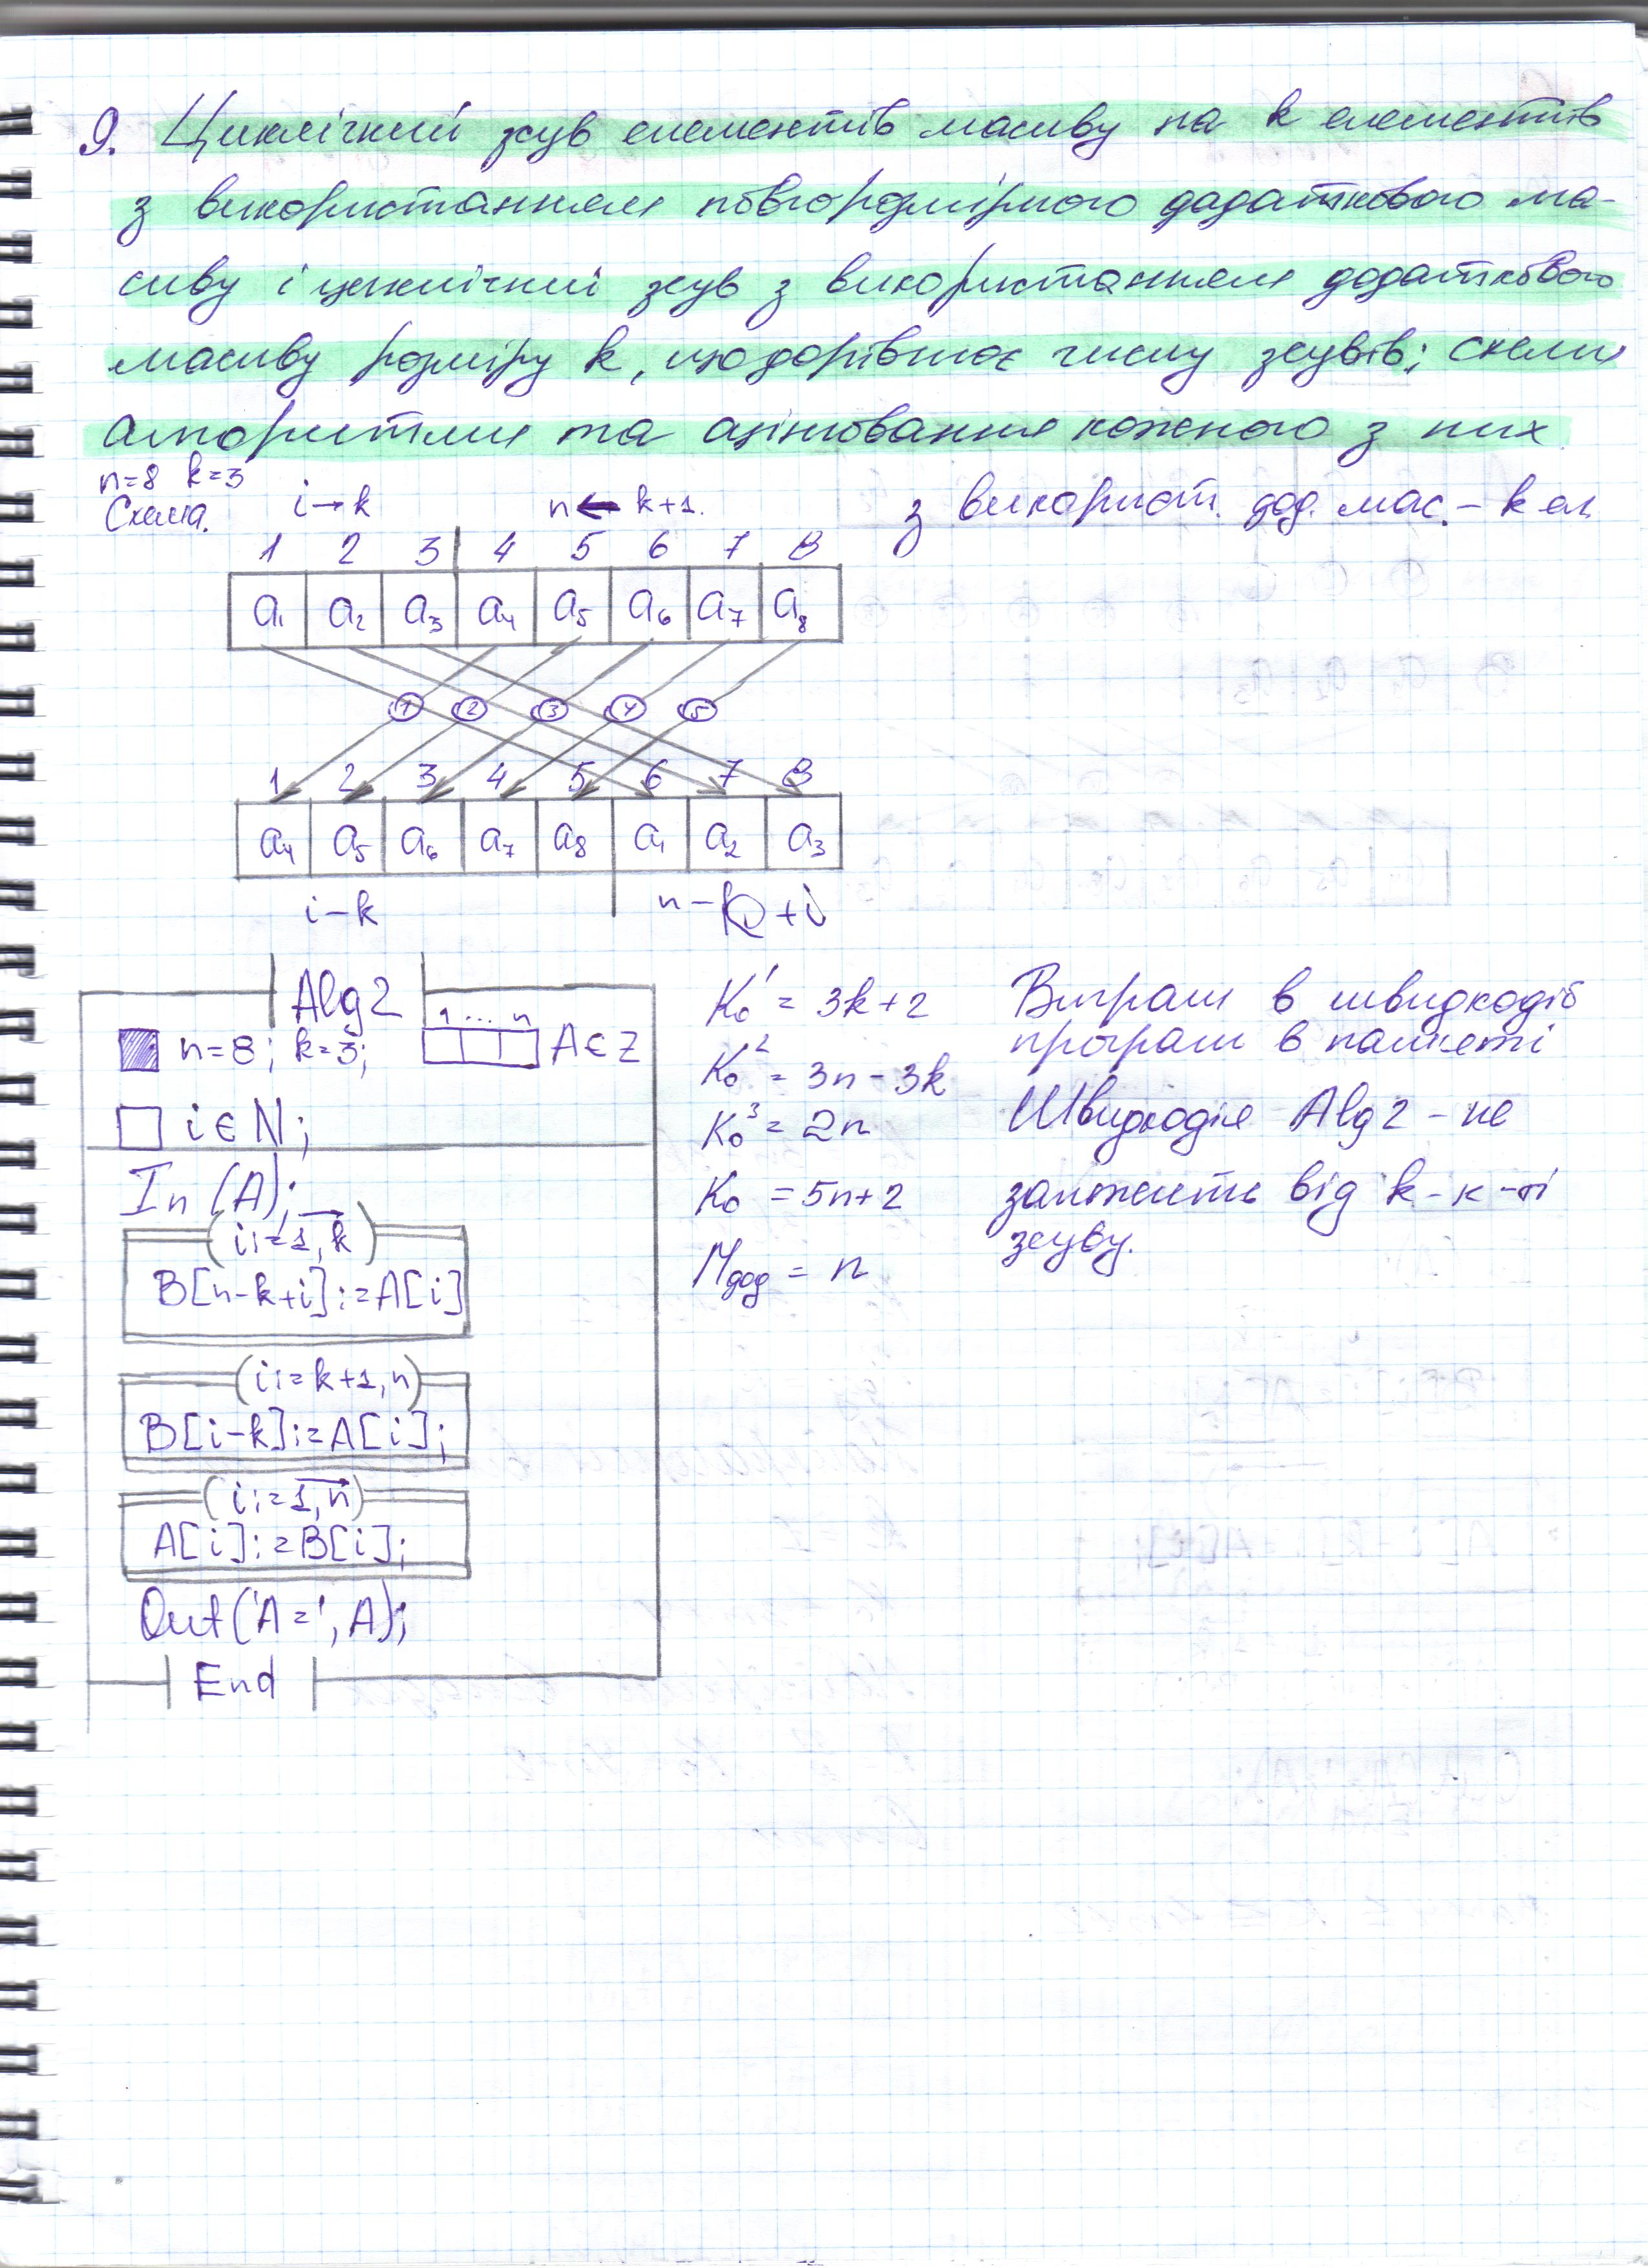 9. Циклічний зсув елементів масиву на k елементів
з використанням повнорозмірного додаткового ма-
сиву і циклічний зсув з використанням додаткового
масиву розміру k, що дорівнює числу зсувів; схеми
алгоритми та оцінювання кожного з них
n=8 k=3
Схема.
i→k
n← k+1.
з використ. дод. мас. – k ел.
1 2 3 4 5 6 7 8
a₁ a₂ a₃ a₄ a₅ a₆ a₇ a₈
1 2 3 4 5
1 2 3 4 5 6 7 8
a₄ a₅ a₆ a₇ a₈ a₁ a₂ a₃
i-k
n-k+i
Alg2
1 ... n
n=8; k=3;
A∈Z
i∈N;
In(A);
(i:=1,k)
B[n-k+i]:=A[i]
(i:=k+1,n)
B[i-k]:=A[i];
(i:=1,n)
A[i]:=B[i];
Out('A=',A);
End
K₀¹ = 3k+2
K₀² = 3n-3k
K₀³ = 2n
K₀ = 5n+2
Mдод = n
Виграш в швидкодії
програш в пам'яті
Швидкодія Alg2 - не
залежить від k - к-ті
зсуву.